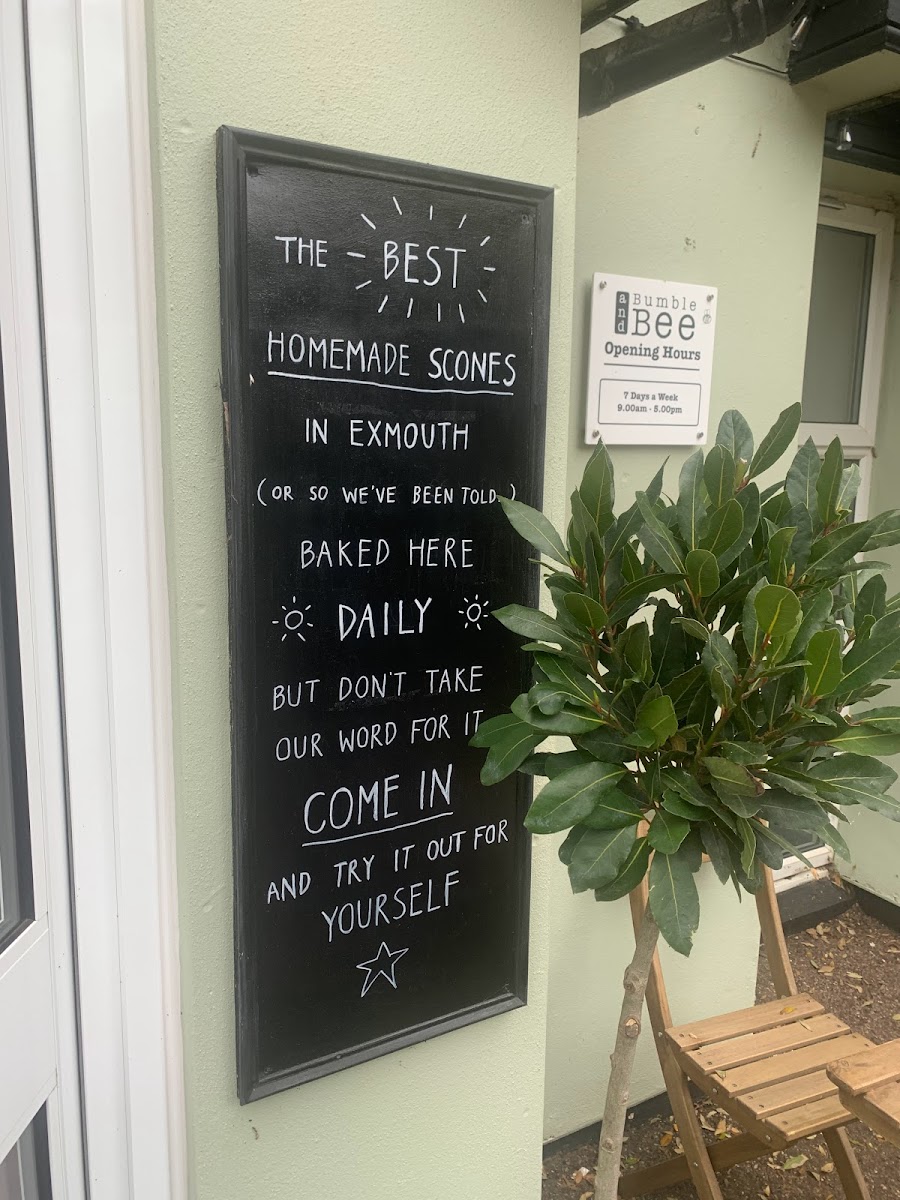 THE BEST
HOMEMADE SCONES
IN EXMOUTH
(OR SO WE'VE BEEN TOLD..)
BAKED HERE
DAILY
BUT DON'T TAKE
OUR WORD FOR IT
COME IN
AND TRY IT OUT FOR
YOURSELF
Bumble
and Bee
Opening Hours
7 Days a Week
9.00am - 5.00pm